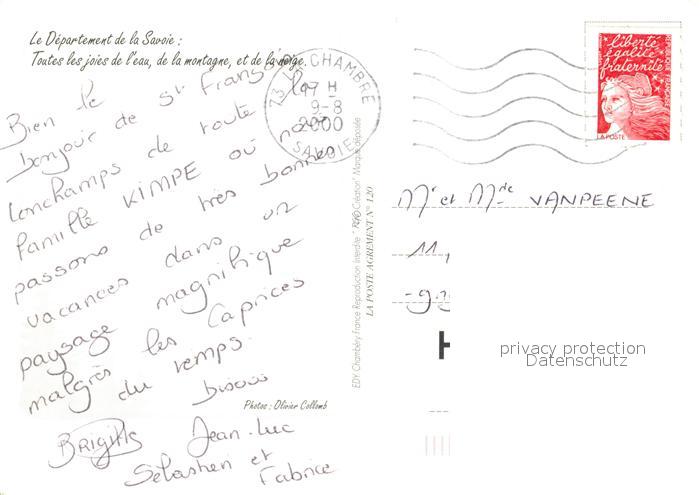 Le Département de la Savoie :
Toutes les joies de l'eau, de la montagne, et de la neige.
Bien le
bonjour de St François
Lonchamps de toute la
famille KIMPE où nous
passons de très bonnes
vacances dans un
paysage magnifique
malgrès les Caprices
du temps.
bisous
Photos : Olivier Collomb
Brigitte Jean-Luc
Sébastien et
Fabrice
73 LA CHAMBRE
17 H
9-8
2000
SAVOIE
EDY Chambéry France Reproduction Interdite Création Marque déposée
LA POSTE AGREMENT N° 120
liberté
égalité
fraternité
LA POSTE
Mr et Mme VANPEENE
11,
privacy protection
Datenschutz